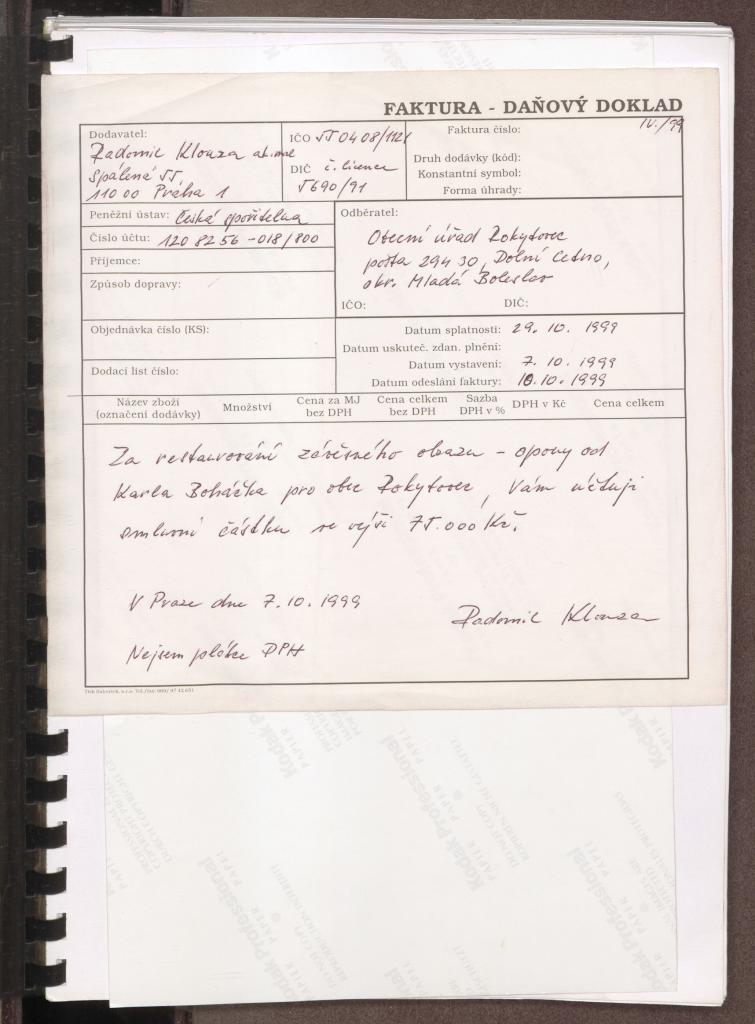 FAKTURA - DAŇOVÝ DOKLAD
Dodavatel:
Radomil Klouza ak. mal
Spálená 55,
110 00 Praha 1
IČO 550408/1121
DIČ č. licence
5690/91
Faktura číslo: IV./99
Druh dodávky (kód):
Konstantní symbol:
Forma úhrady:
Peněžní ústav: Česká spořitelna
Číslo účtu: 120 82 56 - 018/800
Příjemce:
Způsob dopravy:
Odběratel:
Obecní úřad Rokytovec
pošta 294 30, Dolní Cetno,
okr. Mladá Boleslav
IČO: DIČ:
Objednávka číslo (KS):
Dodací list číslo:
Datum splatnosti: 29. 10. 1999
Datum uskuteč. zdan. plnění:
Datum vystavení: 7. 10. 1999
Datum odeslání faktury: 10. 10. 1999
Název zboží
(označení dodávky)
Množství
Cena za MJ
bez DPH
Cena celkem
bez DPH
Sazba
DPH v %
DPH v Kč
Cena celkem
Za restaurování závěsného obrazu - opony od
Karla Boháčka pro obec Rokytovec, Vám účtuji
smluvní částku ve výši 75.000 Kč.
V Praze dne 7. 10. 1999
Radomil Klouza
Nejsem plátce DPH
Kodak Professional
PAPIER PAPEL
Kodak Professional
PAPER PAPIER
Kodak Professional
PAPER PAPIER